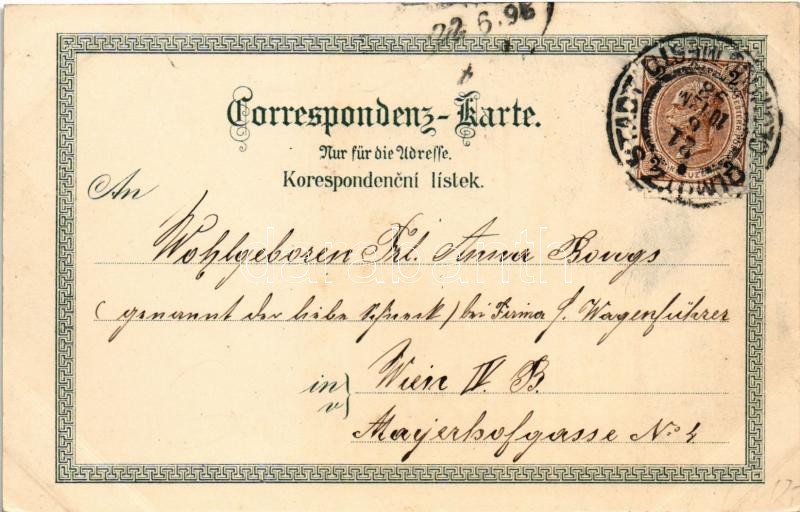 22.6.98
Correspondenz-Karte.
Nur für die Adresse.
Korespondenční lístek.
An
Wohlgeboren Frl. Anna Bongs
(genannt der liebe Schneck) bei Firma J. Wagenführer
in
v
Wien IV. B.
Mayerhofgasse No. 2
OLMÜTZ STADT